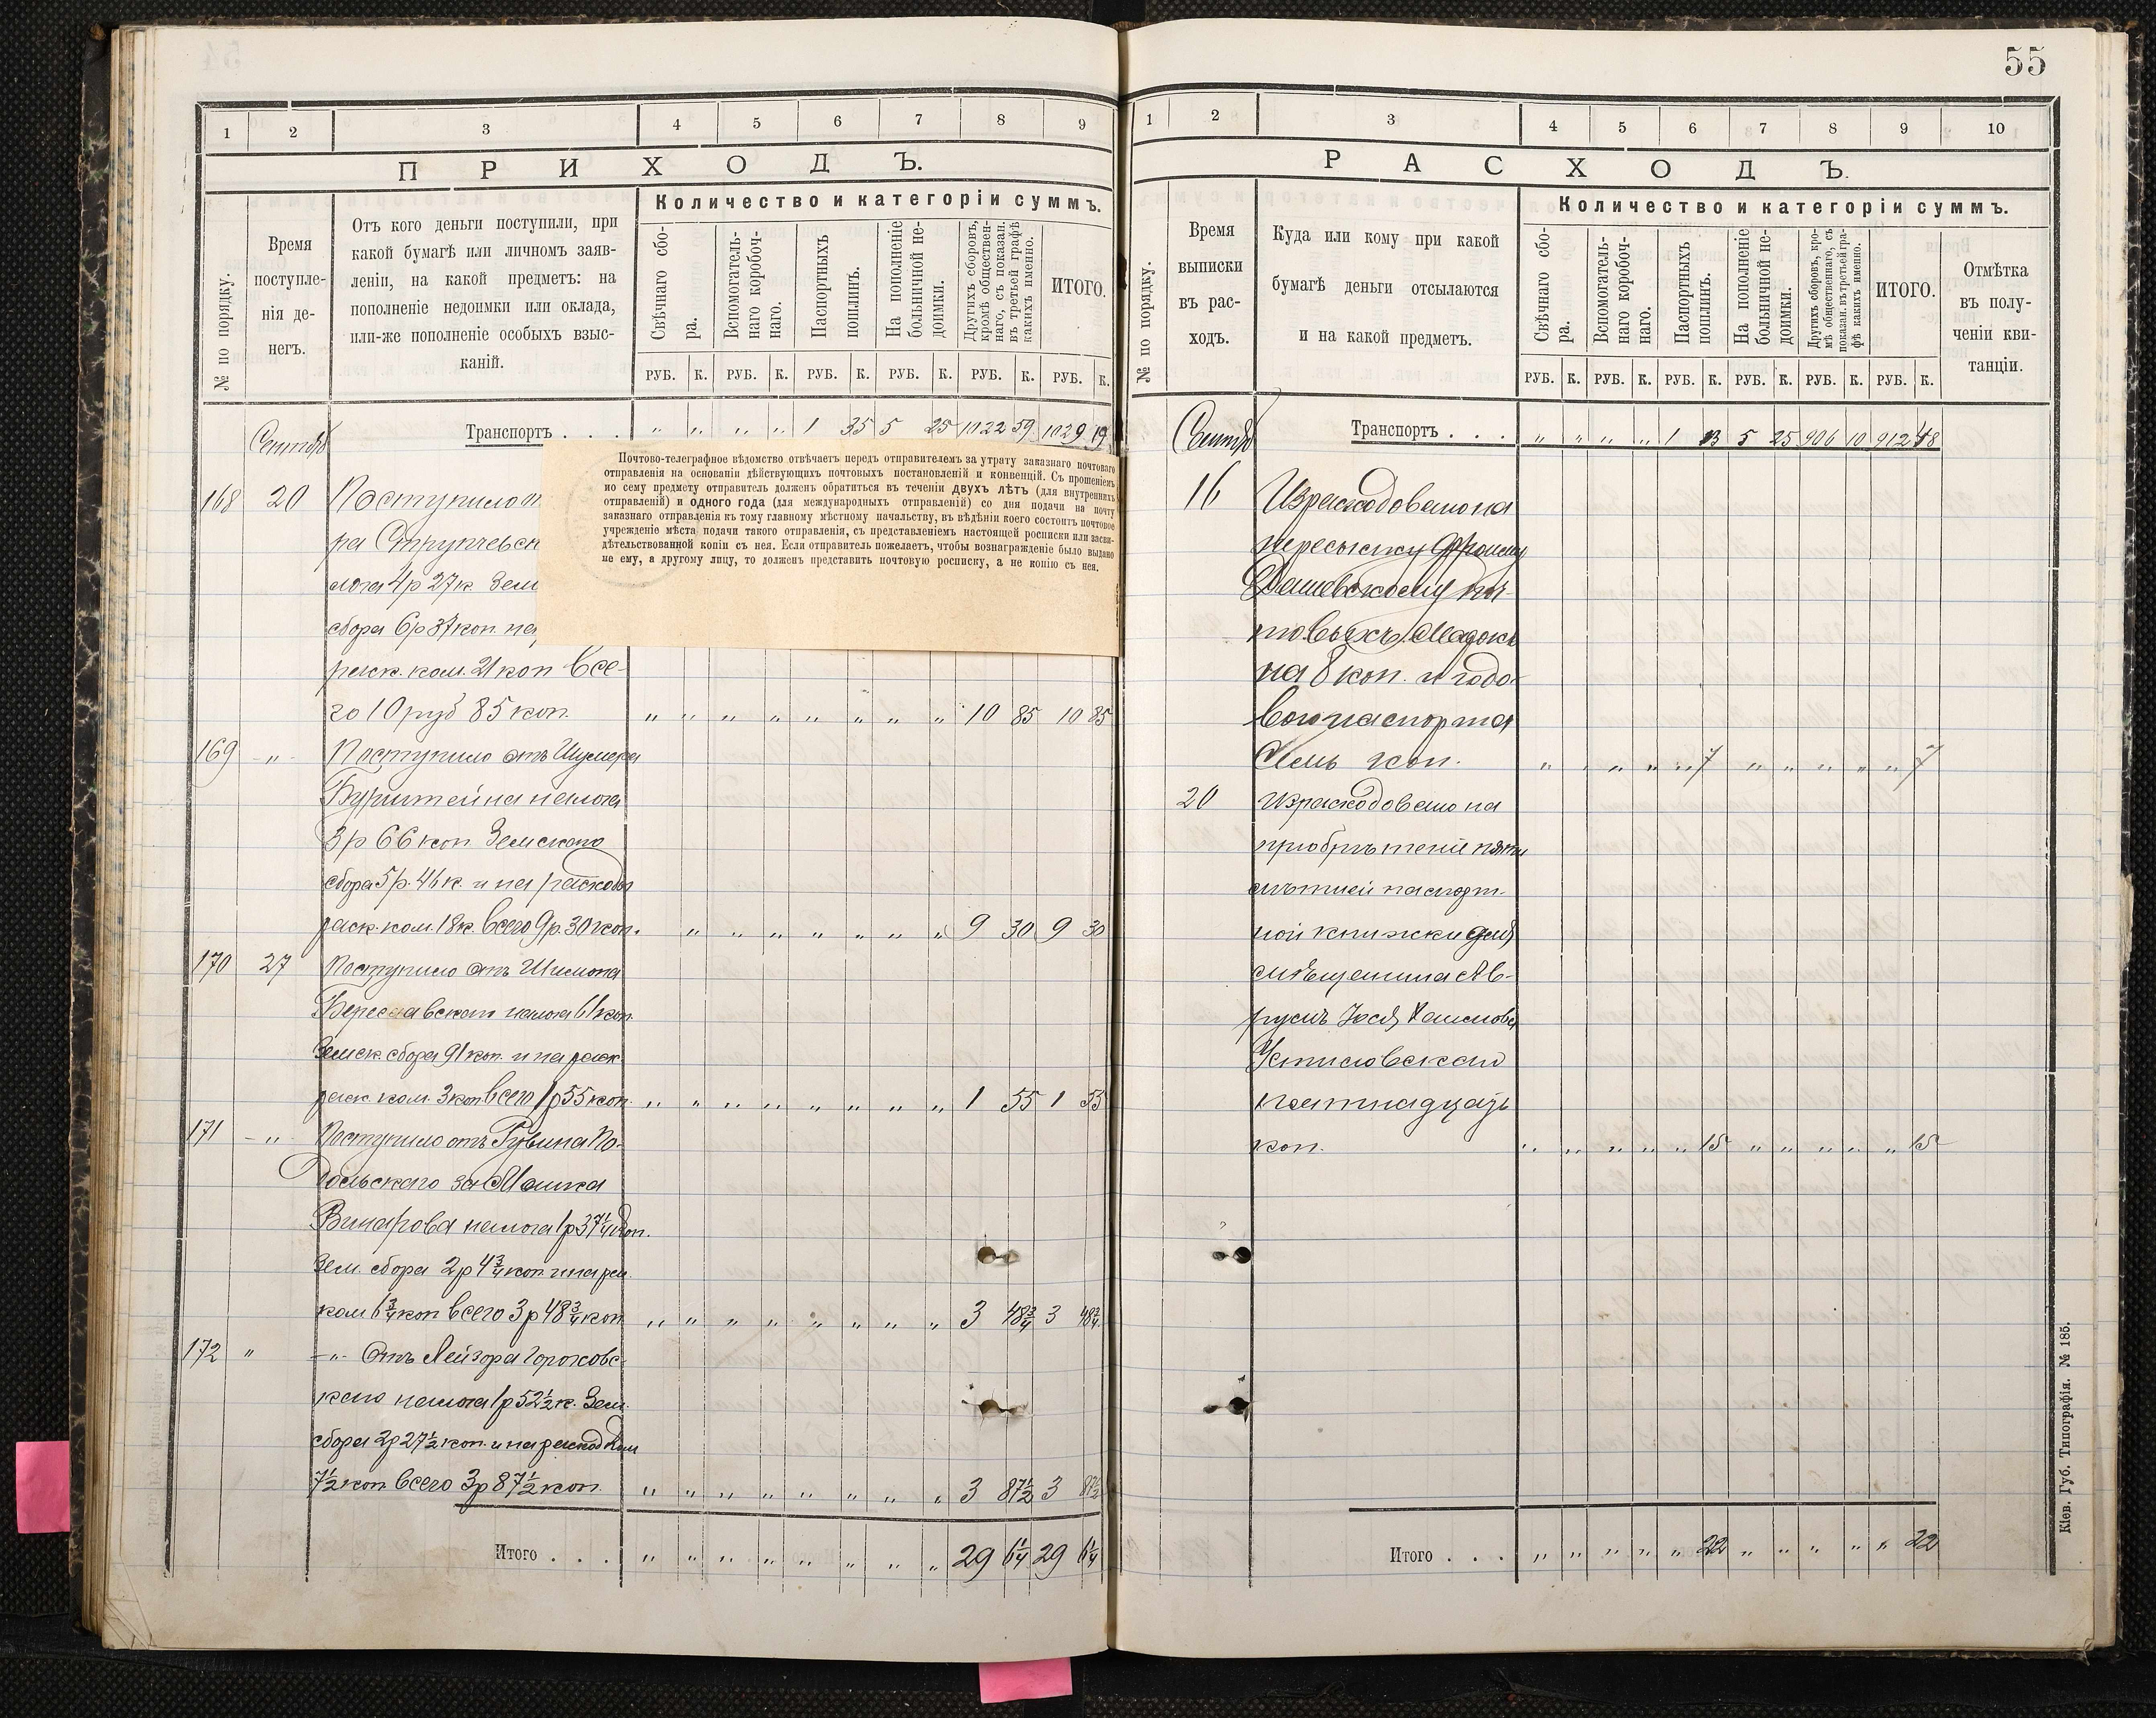 55
1 2 3 4 5 6 7 8 9
ПРИХОДЪ.
№ по порядку.
Время
поступле-
нія де-
негъ.
Отъ кого деньги поступили, при
какой бумагѣ или личномъ заяв-
леніи, на какой предметъ: на
пополненіе недоимки или оклада,
или-же пополненіе особыхъ взыс-
каній.
Количество и категоріи суммъ.
Свѣчнаго сбо-
ра.
Вспомогатель-
наго коробоч-
наго.
Паспортныхъ
пошлинъ.
На пополненіе
больничной не-
доимки.
Другихъ сборовъ,
кромѣ обществен-
наго, съ показан.
въ третьей графѣ
какихъ именно.
ИТОГО.
РУБ. К. РУБ. К. РУБ. К. РУБ. К. РУБ. К. РУБ. К.
Сентябр Транспортъ . . . „ „ „ „ 1 35 5 25 1022 59 1029 19
Почтово-телеграфное вѣдомство отвѣчаетъ передъ отправителемъ за утрату заказнаго почтоваго
отправленія на основаніи дѣйствующихъ почтовыхъ постановленій и конвенцій. Съ прошеніемъ
по сему предмету отправитель долженъ обратиться въ теченіи двухъ лѣтъ (для внутреннихъ
отправленій) и одного года (для международныхъ отправленій) со дня подачи на почту
заказнаго отправленія къ тому главному мѣстному начальству, въ вѣдѣніи коего состоитъ почтовое
учрежденіе мѣста подачи такого отправленія, съ представленіемъ настоящей росписки или засви-
дѣтельствованной копіи съ нея. Если отправитель пожелаетъ, чтобы вознагражденіе было выдано
не ему, а другому лицу, то долженъ представить почтовую росписку, а не копію съ нея.
168 20 Поступило
ра
лога 4р 27к. Зем
сбора 6р 37 коп. на
раск. ком. 21 коп Все-
го 10 руб 85 коп. „ „ „ „ „ „ „ „ 10 85 10 85
169 „ Поступило отъ Шумера
Бурштейна налога
3р 66 коп Земскаго
сбора 5р. 46 к. и на расходы
раск. ком. 18 к. Всего 9р. 30 коп. „ „ „ „ „ „ „ 9 30 9 30
170 27 Поступило отъ Шимона
налога 61 коп.
Земск. сбора 91 коп. и на расх
раск. ком. 3 коп Всего 1р 55 коп. „ „ „ „ „ „ „ „ 1 55 1 55
171 „ Поступило отъ Рувина По-
дольскаго за Мошка
Винарова налога 1р 37¼ коп.
Зем. сбора 2р 4¾ коп и на рас
ком 6¾ коп Всего 3р 48¾ коп „ „ „ „ „ „ „ „ 3 48¾ 3 48¾
172 „ „ Отъ Лейзора Гороховс-
каго налога 1р 52½ к. Зем.
сбора 2р 27½ коп. и на расход Ком
7½ коп Всего 3р 87½ коп. „ „ „ „ „ „ „ „ 3 87½ 3 87½
Итого . . . „ „ „ „ „ „ „ „ 29 6¼ 29 6¼
1 2 3 4 5 6 7 8 9 10
РАСХОДЪ.
№ по порядку.
Время
выписки
въ рас-
ходъ.
Куда или кому при какой
бумагѣ деньги отсылаются
и на какой предметъ.
Количество и категоріи суммъ.
Свѣчнаго сбо-
ра.
Вспомогатель-
наго коробоч-
наго.
Паспортныхъ
пошлинъ.
На пополненіе
больничной не-
доимки.
Другихъ сборовъ, кро-
мѣ общественнаго, съ
показан. въ третьей гра-
фѣ какихъ именно.
ИТОГО.
Отмѣтка
въ полу-
ченіи кви-
танціи.
РУБ. К. РУБ. К. РУБ. К. РУБ. К. РУБ. К. РУБ. К.
Сентябр Транспортъ . . . „ „ „ „ 1 13 5 25 906 10 912 48
16 Израсходовано на
пересылку
Дашевскому поч-
товыхъ Марокъ
на 8 коп. и годо-
вого паспорта
Семь коп. „ „ „ „ „ 7 „ „ „ „ „ 7
20 Израсходовано на
пріобрѣтеніе пяти
лѣтней паспорт-
ной книжки для
мѣщанина Ав-
румъ
пятнадцать
коп. „ „ „ „ „ 15 „ „ „ „ „ 15
Итого . . . „ „ „ „ „ 22 „ „ „ „ „ 22
Кіев. Губ. Типографія. № 185.